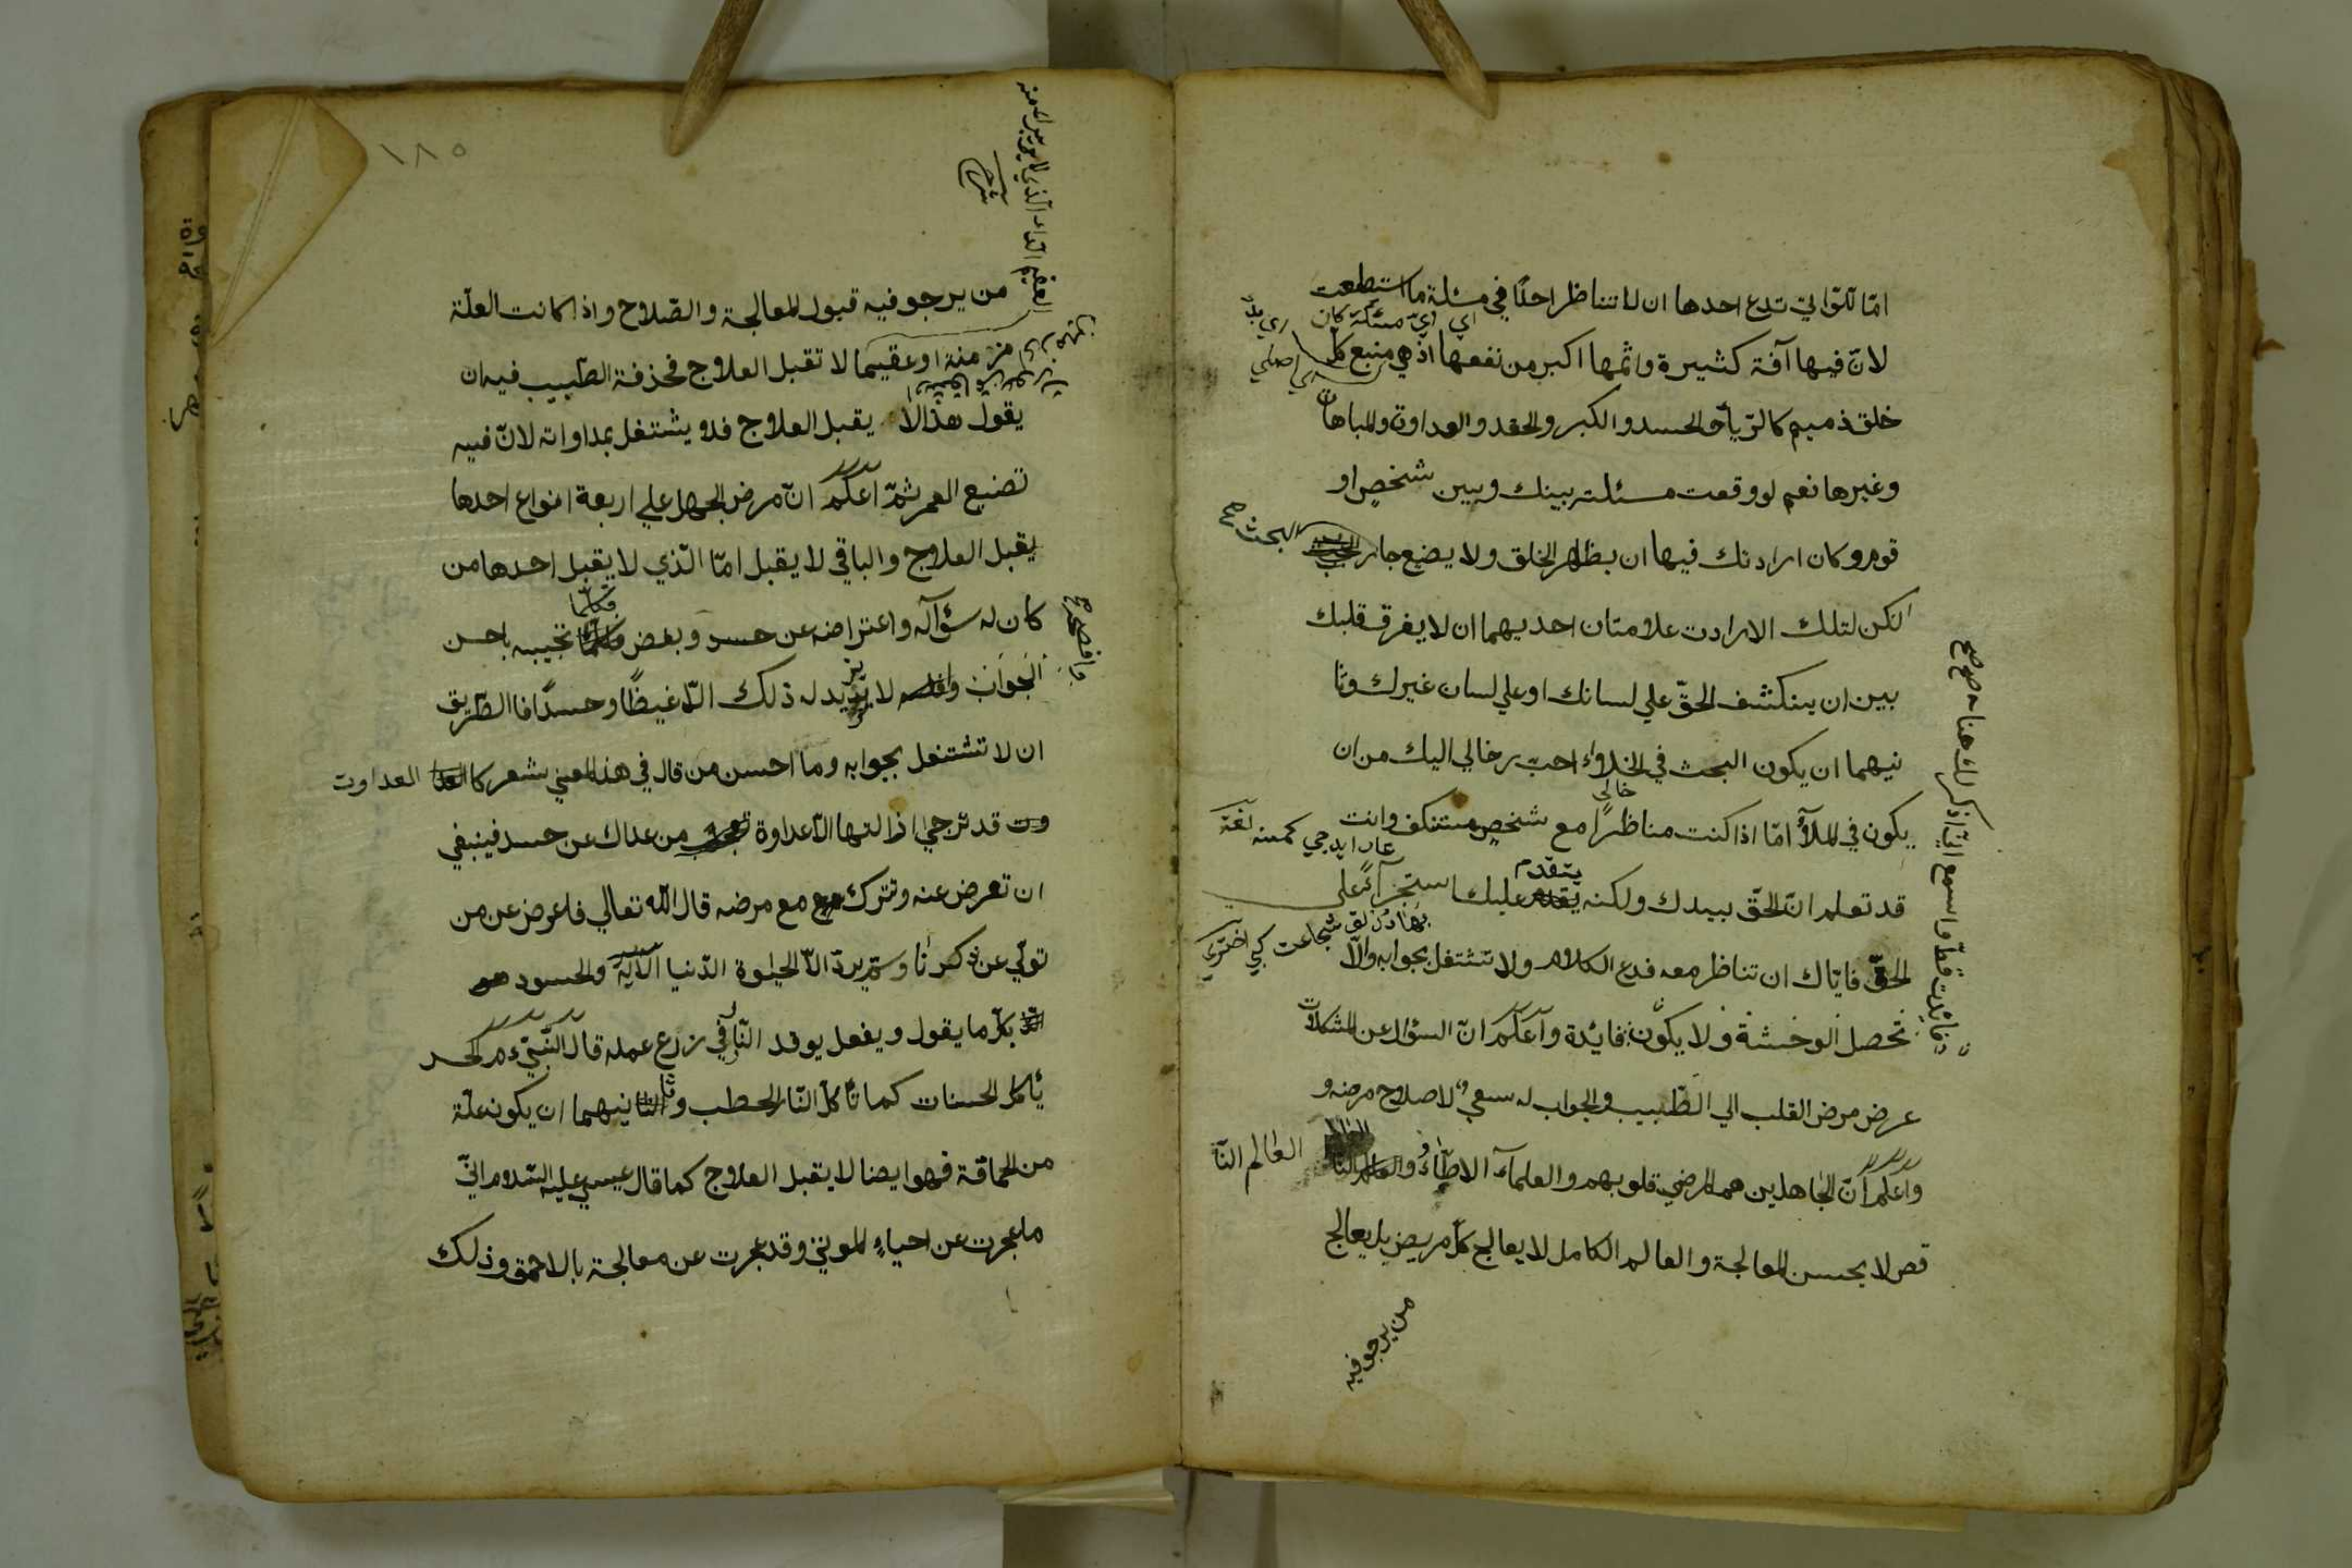 امّا للّواتي تدع احدها ان لا تناظر احدًا في مسئلة ما استطعت
اي ايّ مسئلة كان
لانّ فيها آفة كثيرة واثمها اكبر من نفعها اذ هي منبع كل
اصلي
خلق ذميم كالرّيآء والحسد والكبر والحقد والعداوة والمباهات
وغيرها نعم لو وقعت مسئلة بينك وبين شخص او
قوم وكان ارادتك فيها ان يظهر الخلق ولا يضع جاز
البحث صح
لكن لتلك الارادت علامتان احديهما ان لا يفرق قلبك
بين ان ينكشف الحقّ علي لسانك او علي لسان غيرك وثا
نيهما ان يكون البحث في الخلاء احبّ اليك من ان
خالي
يكون في الملأ امّا اذا كنت مناظرًا مع شخص مستنكف وانت
قد تعلم انّ الحقّ بيدك ولكنه يتقدم عليك استجرآء علي
الحقّ فايّاك ان تناظر معه فدع الكلام ولا تشتغل بجوابه والّا
تحصل الوحشة ولا يكون فايدة واعلم انّ السؤال عن المشكلات
عرض مرض القلب الي الطّبيب والجواب له سعي لاصلاح مرضه و
واعلم انّ الجاهلين هم المرضي قلوبهم والعلمآء الاطبّاء والعالم النّا
قص لا يحسن المعالجة والعالم الكامل لا يعالج كل مريض بل يعالج
من يرجو فيه
فائدت قطّ واسمع انّي اذكر لك هنا صح
١٨٥
العقيم الدّاء الذي لا يبرأ منه
شرح
من يرجو فيه قبول المعالجة والصّلاح واذا كانت العلّة
مزمنة او عقيما لا تقبل العلاج فحذقة الطّبيب فيه ان
يقول هذا لا يقبل العلاج فلا يشتغل بمداواته لانّ فيه
تضيع العمر ثمّ اعلم انّ مرض الجهل علي اربعة انواع احدها
يقبل العلاج والباقي لا يقبل امّا الّذي لا يقبل احدها من
كان له سؤآله واعتراضه عن حسد وبغض فكلّما تجيبه باحسن
الجواب لا يزيد له ذلك الّا غيظًا وحسدًا فا الطّريق
ان لا تشتغل بجوابه وما احسن من قال في هذا المعني شعر كل العداوت
قد ترجي ازالتها الّا عداوة من عداك عن حسد فينبغي
ان تعرض عنه وتترك مع مرضه قال اللّه تعالي فاعرض عن من
تولّي عن ذكرنا ولم يرد الّا الحيوة الدّنيا الآية والحسود
بكلّ ما يقول ويفعل يوقد النّار في زرع عمله قال النّبيّ م الحسد
يأكل الحسنات كما تأكل النّار الحطب وثانيهما ان يكون علّة
من الحماقة فهو ايضا لا يقبل العلاج كما قال عيسي عليه السّلام انّي
ما عجزت عن احياء الموتي وقد عجزت عن معالجة بالاحمق وذلك